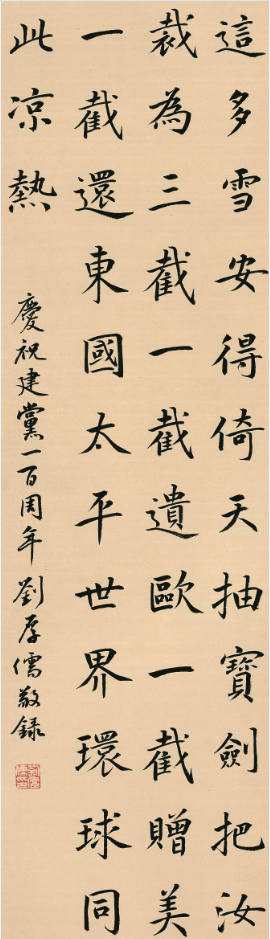 這多雪安得倚天抽寶劍把汝
裁為三截一截遺歐一截贈美
一截還東國太平世界環球同
此凉熱
慶祝建黨一百周年劉厚儒敬録